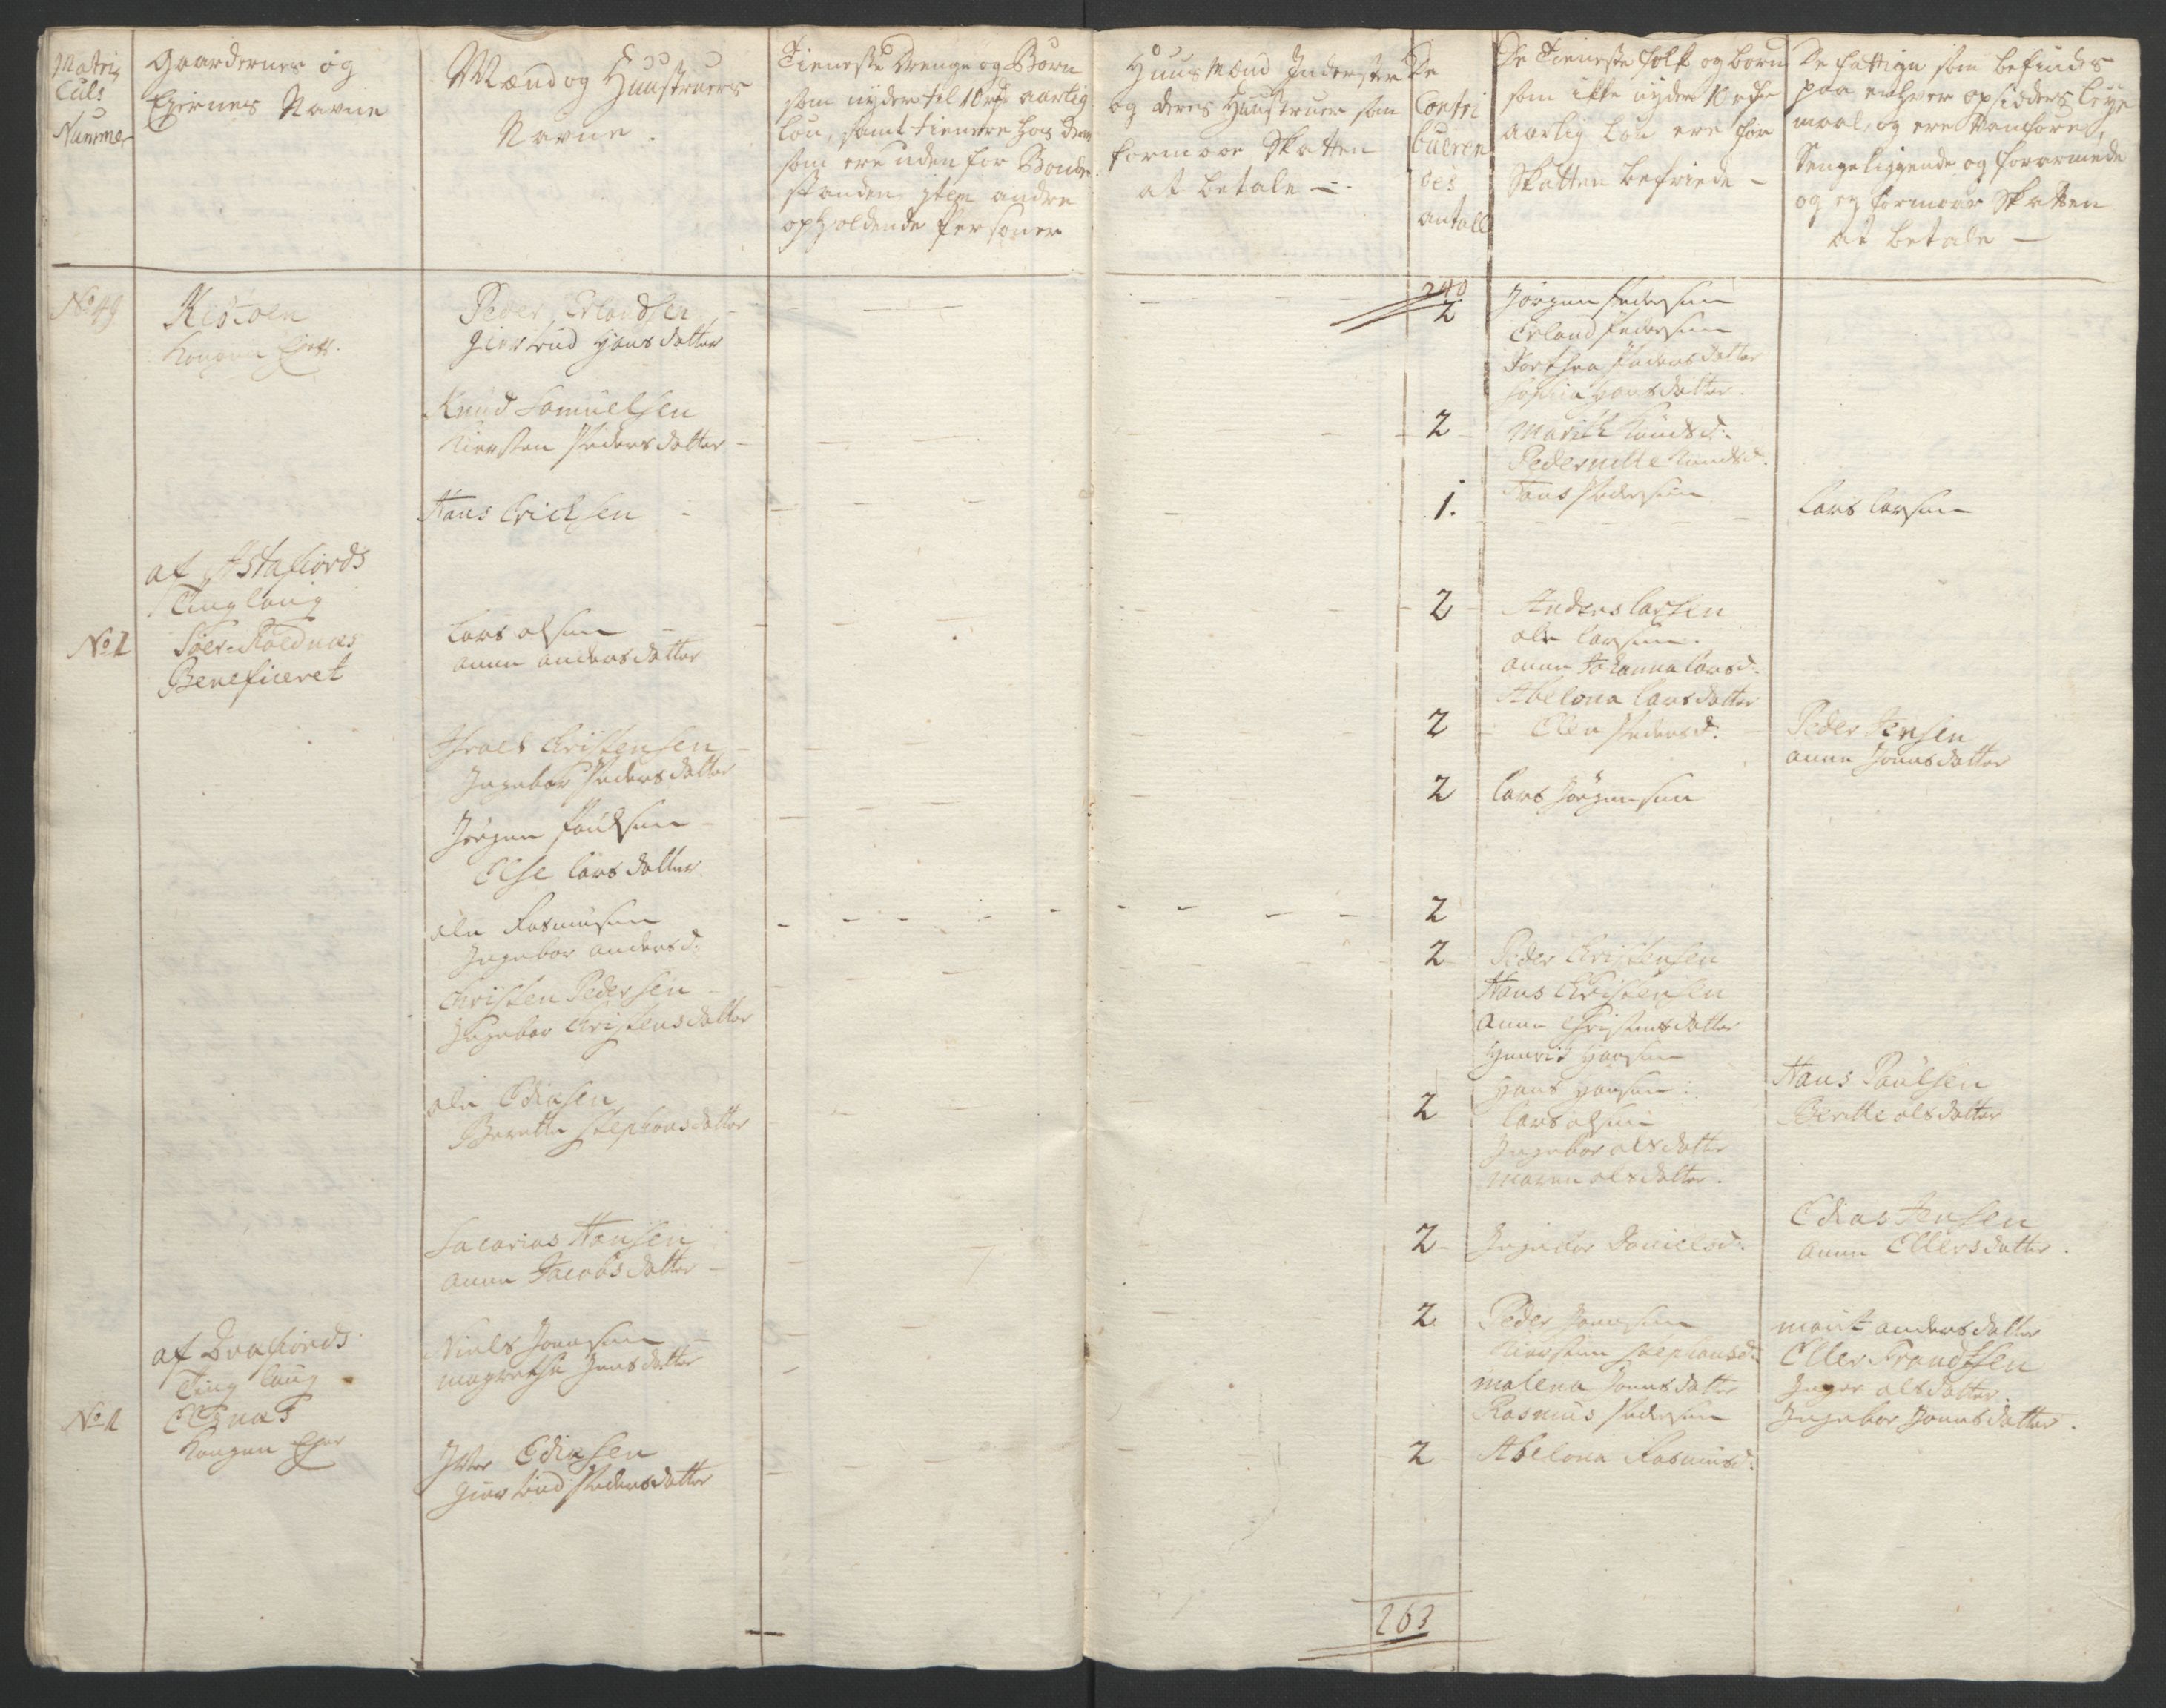 Matri
culs
Nummer
Gaardernes og
Eyernes Navne
Mænd og Hunstruers
Navne.
Tieneste Drenge og Børn
som nyder til 10 rdr aarlig
Løn, samt tienere hos dem
som ere uden for Bonde
standen, item andre
opholdende Personer
Huusmænd Inderster
og deres Hunstruer som
formaar Skatten
at betale —
De
Contri
bueren
des
antall
De Tieneste folk og børn
som ikke nyder 10 rdr
aarlig Løn ere for
Skatten befriede —
De fattige som befindes
paa enhver opsidders leye
maal, og ere Vanføre,
Sengeliggende og forarmede
og ey formaar Skatten
at betale —
No 49
Kongen Eyer.
Peder Erlandsen
Giertrud Hansdatter
240
2
Jørgen Pedersen
Erland Pedersen
Dorthea Pedersdatter
Sophia Hansdatter.
Knud Samuelsen
Kiersten Pedersdatter
2
Marith Knudsd:
Pedernille Knudsd.
Hans Pedersen
Hans Erichsen
1.
Lars Larsen
af Astafiords
Tinglaug
No 1
Søer-Roldnæs
Beneficeret
Lars Olsen
Anne Andersdatter
2
Anders Larsen
Ole Larsen.
Anne Johanna Larsd:
Abelona Larsdatter
Israel Christensen
Ingebor Pedersdatter
2
Ellen Pedersd:
Peder Jensen
Anne Jonasdatter
Jørgen Poulsen
Else Larsdatter
2
Lars Jørgensen
Ole Rasmusen
Ingebor Andersd:
2
Christen Pedersen
Ingebor Christensdatter
2
Peder Christensen
Hans Christensen
Anne Christensdatter
Henrich Hansen
Hans Hansen:
Ole Ediasen
Berette Stephensdatter
2
Lars Olsen
Ingebor Olsdatter
Maren Olsdatter.
Hans Paulsen
Beritte Olsdatter
Sacarias Hansen
Anne Jacobsdatter
2
Ingebor Danielsd:
Edias Jensen
Anne Ellersdatter.
af
Ting laug
No 1
Kongen Eyer
Niels Jonasen
Magrethe Jensdatter
2
Peder Jonasen
Kiersten Stephensd:
Malena Jonasdatter
Rasmus Pedersen
Marit Andersdatter
Eller Frandtsen
Inger Olsdatter.
Ingebor Jonasdatter.
Iver Ediasen
Giertrud Pedersdatter
2
Abelona Rasmusd:
263